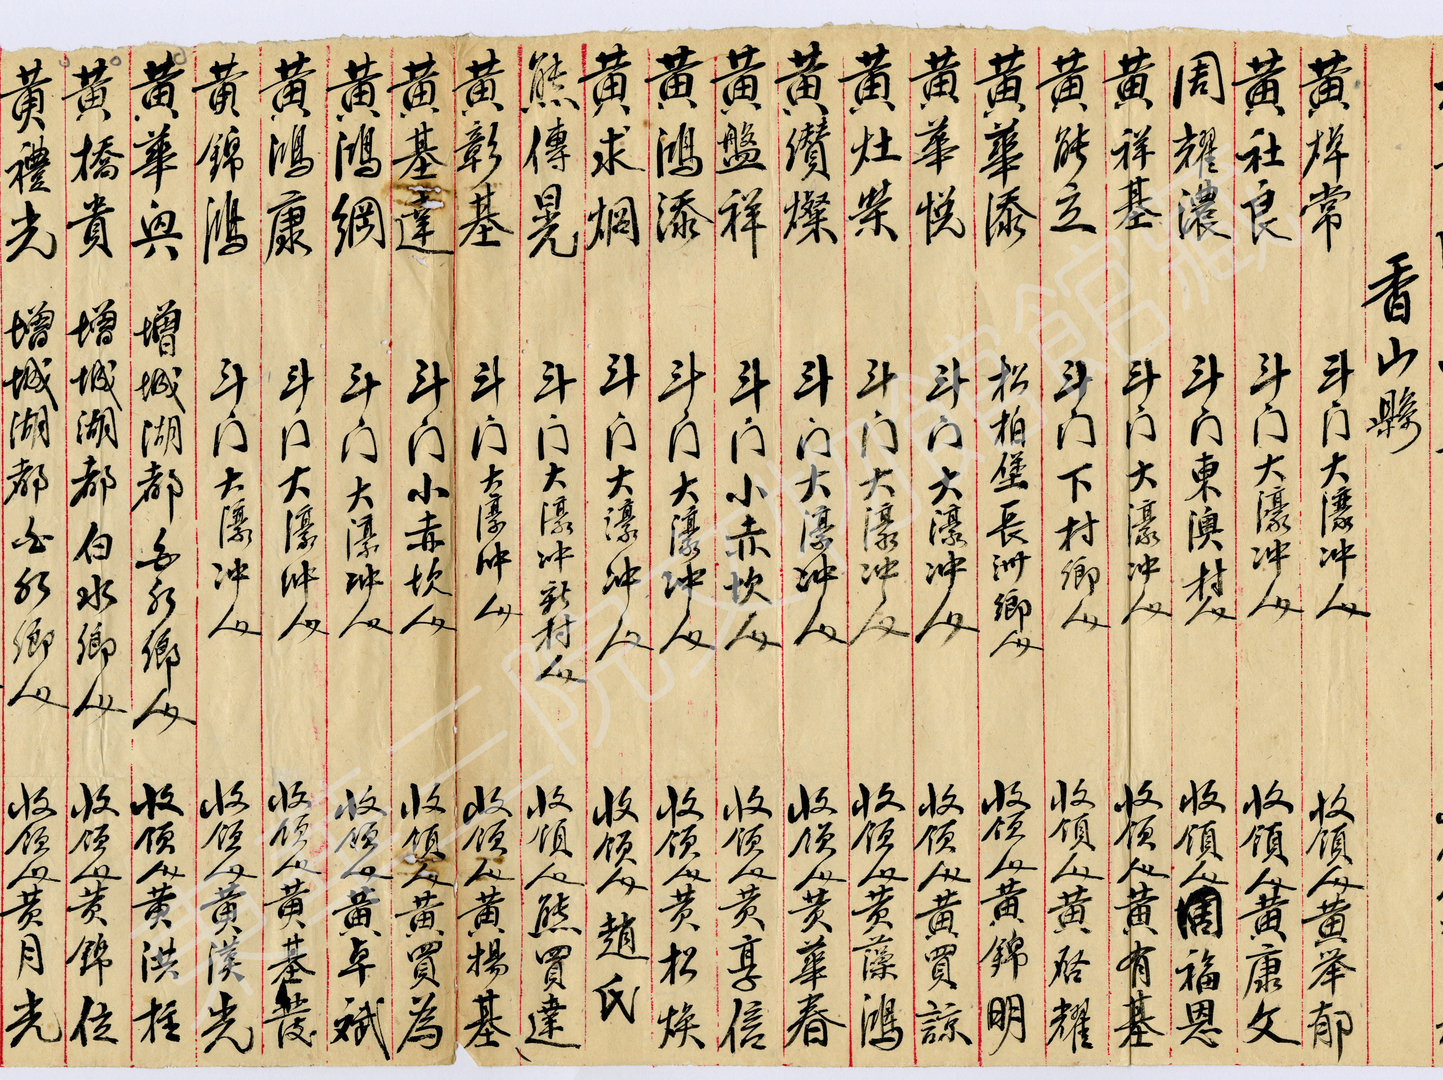 香山縣
黃焯常 斗门大濠冲人 收領人黃举郁
黃社良 斗门大濠冲人 收領人黃康文
周耀濃 斗门東澳村人 收領人周福恩
黃祥基 斗门大濠冲人 收領人黃有基
黃能立 斗门下村鄉人 收領人黃啓耀
黃華添 松柏堡長洲鄉人 收領人黃錦明
黃華悦 斗门大濠冲人 收領人黃買諒
黃灶荣 斗门大濠冲人 收領人黃藻鴻
黃纘燦 斗门大濠冲人 收領人黃華春
黃盤祥 斗门小赤坎人 收領人黃享信
黃鴻添 斗门大濠冲人 收領人黃松焕
黃求烟 斗门大濠冲人 收領人趙氏
熊傳晃 斗门大濠冲新村人 收領人熊買達
黃彰基 斗门大濠冲人 收領人黃揚基
黃基達 斗门小赤坎人 收領人黃買為
黃鴻綱 斗门大濠冲人 收領人黃卓斌
黃鴻康 斗门大濠冲人 收領人黃基發
黃錦鴻 斗门大濠冲人 收領人黃漢光
黃華興 增城湖都白水鄉人 收領人黃洪柱
黃橋貴 增城湖都白水鄉人 收領人黃錦位
黃禮光 增城湖都白水鄉人 收領人黃月光
東華三院文物館館藏